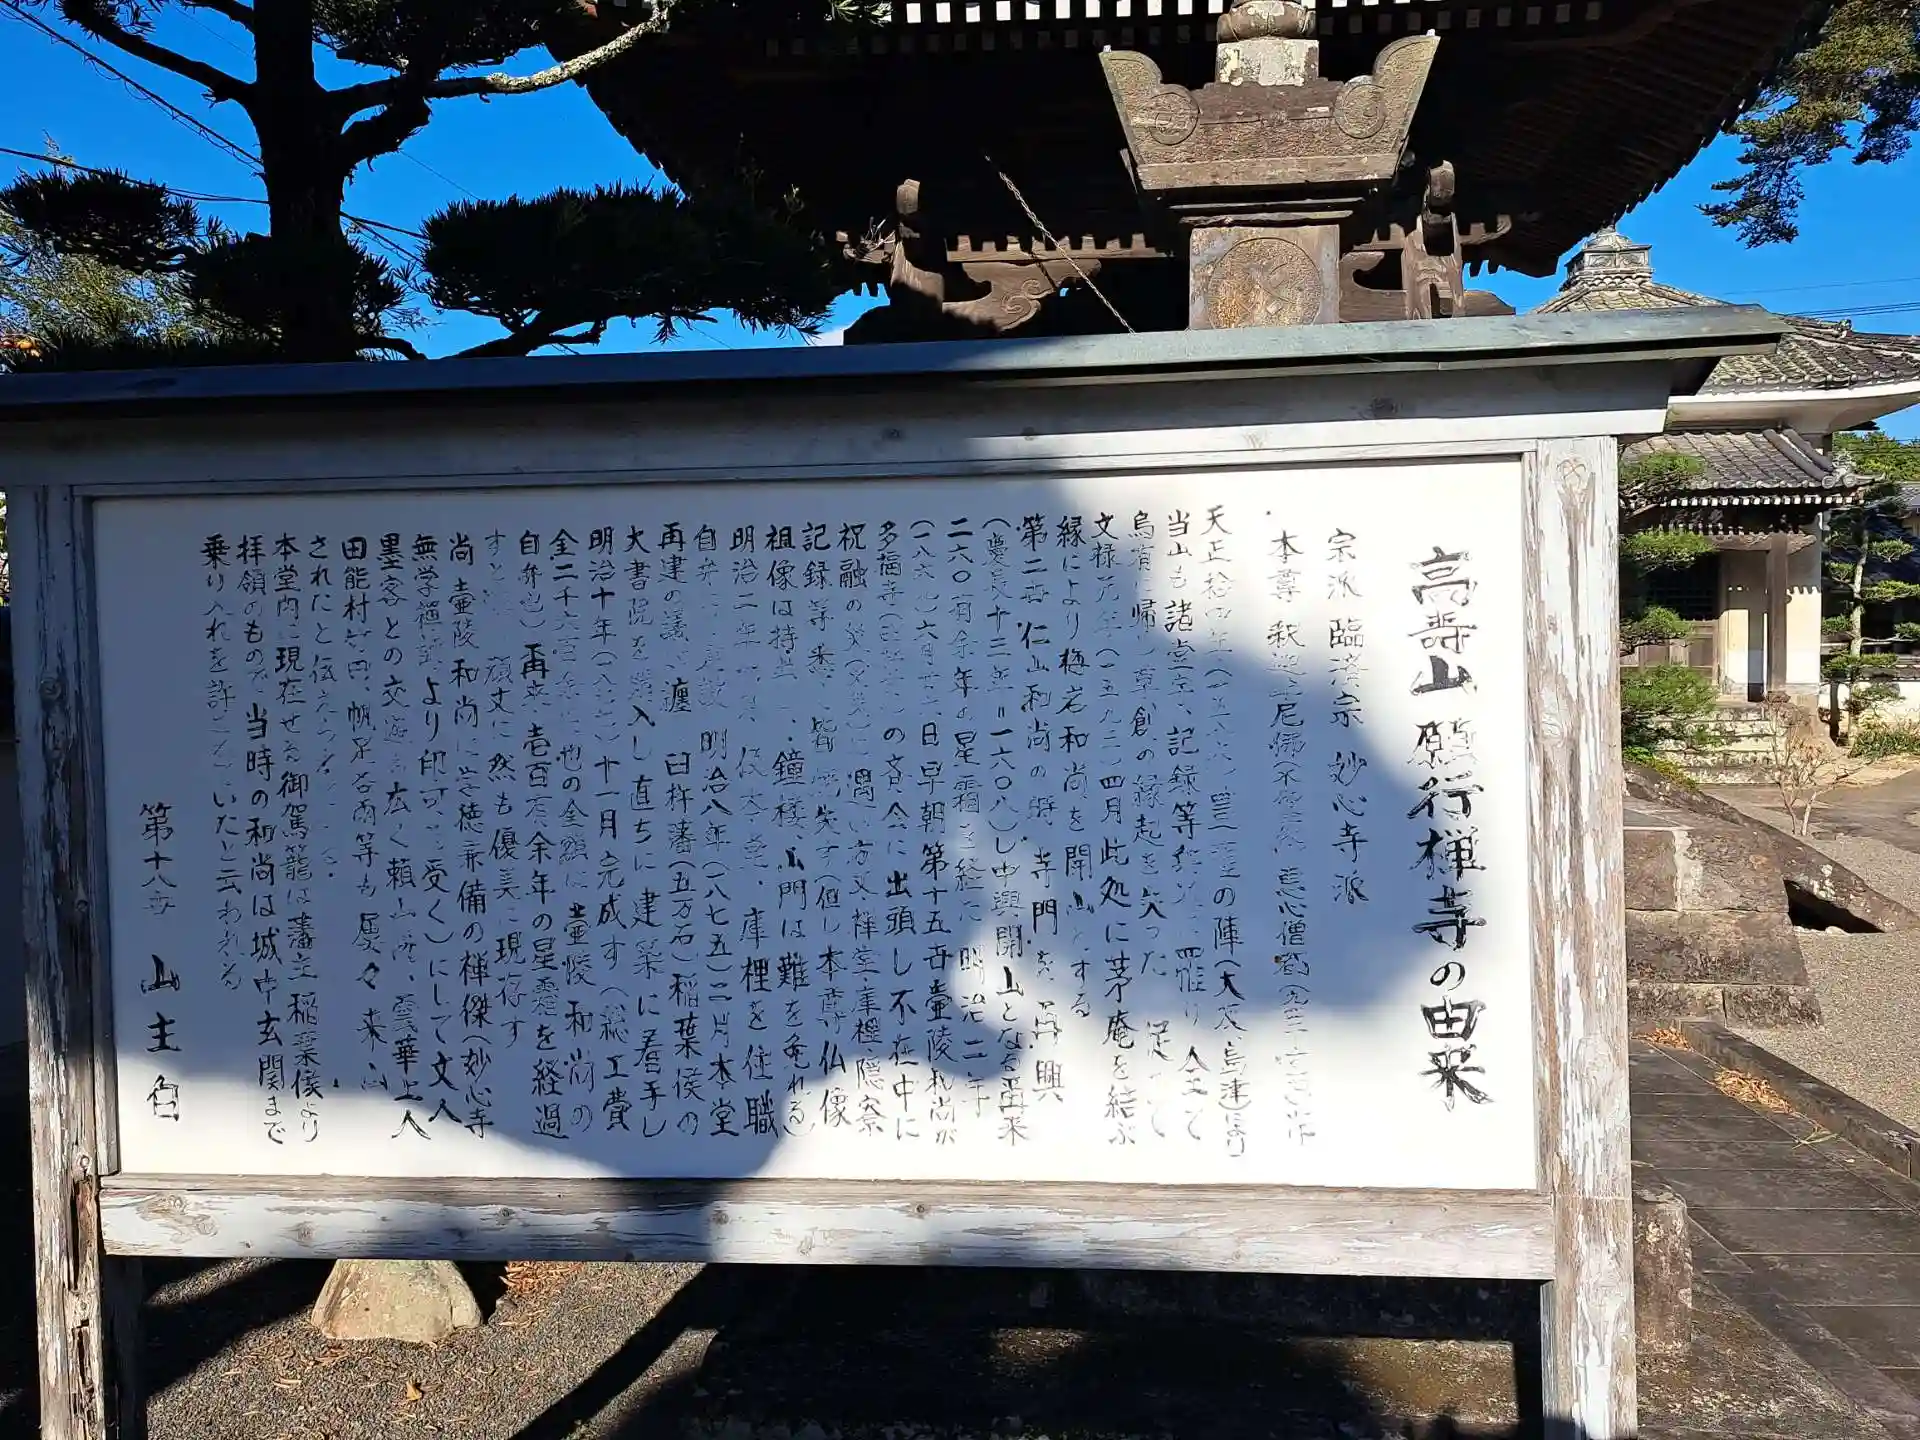 高寿山願行禅寺の由来
宗派 臨済宗 妙心寺派
本尊 釈迦牟尼佛
天正拾四年 の陣(大友島津)により
当山も諸堂宇、記録等 に罹り全て
烏有に帰し草創の縁起を失った 従って
文禄元年(一五九二)四月此処に茅庵を結ぶ
縁により梅岩和尚を開山とする
第二世 仁山和尚の時 寺門を再興
(慶長十三年=一六〇八)し中興開山となる
二六〇有余年の星霜を経に明治二年
六月 日早朝第十五世壷陵和尚が
多福寺 の斎会に出頭し不在中に
祝融の災 に遇い方丈、禅堂、庫裡、隠寮
記録等悉く皆 失す(但し本尊仏像
祖像は持出 、鐘楼、山門は難を免れる)
明治二年 仮本堂、庫裡を住職
自弁 明治八年(一八七五)二月本堂
再建の議 纏 臼杵藩(五万石)稲葉侯の
大書院を購入し直ちに建築に着手し
明治十年 十一月完成す(総工費
全二千 也の全額は壷陵和尚の
自弁也)再来壱百有余年の星霜を経過
すと 頑丈に然も優美に現存す
尚 壷陵和尚は学徳兼備の禅傑(妙心寺
無学禅師より印可 受く)にして文人
墨客との交遊 広く頼山陽、雲華上人
田能村竹田、帆足杏雨等も屡々来
されたと伝えられ
本堂内に現在せる御駕籠は藩主稲葉侯より
拝領のもので当時の和尚は城中玄関まで
乗り入れを許されていたと云われる
第十八世 山主 白